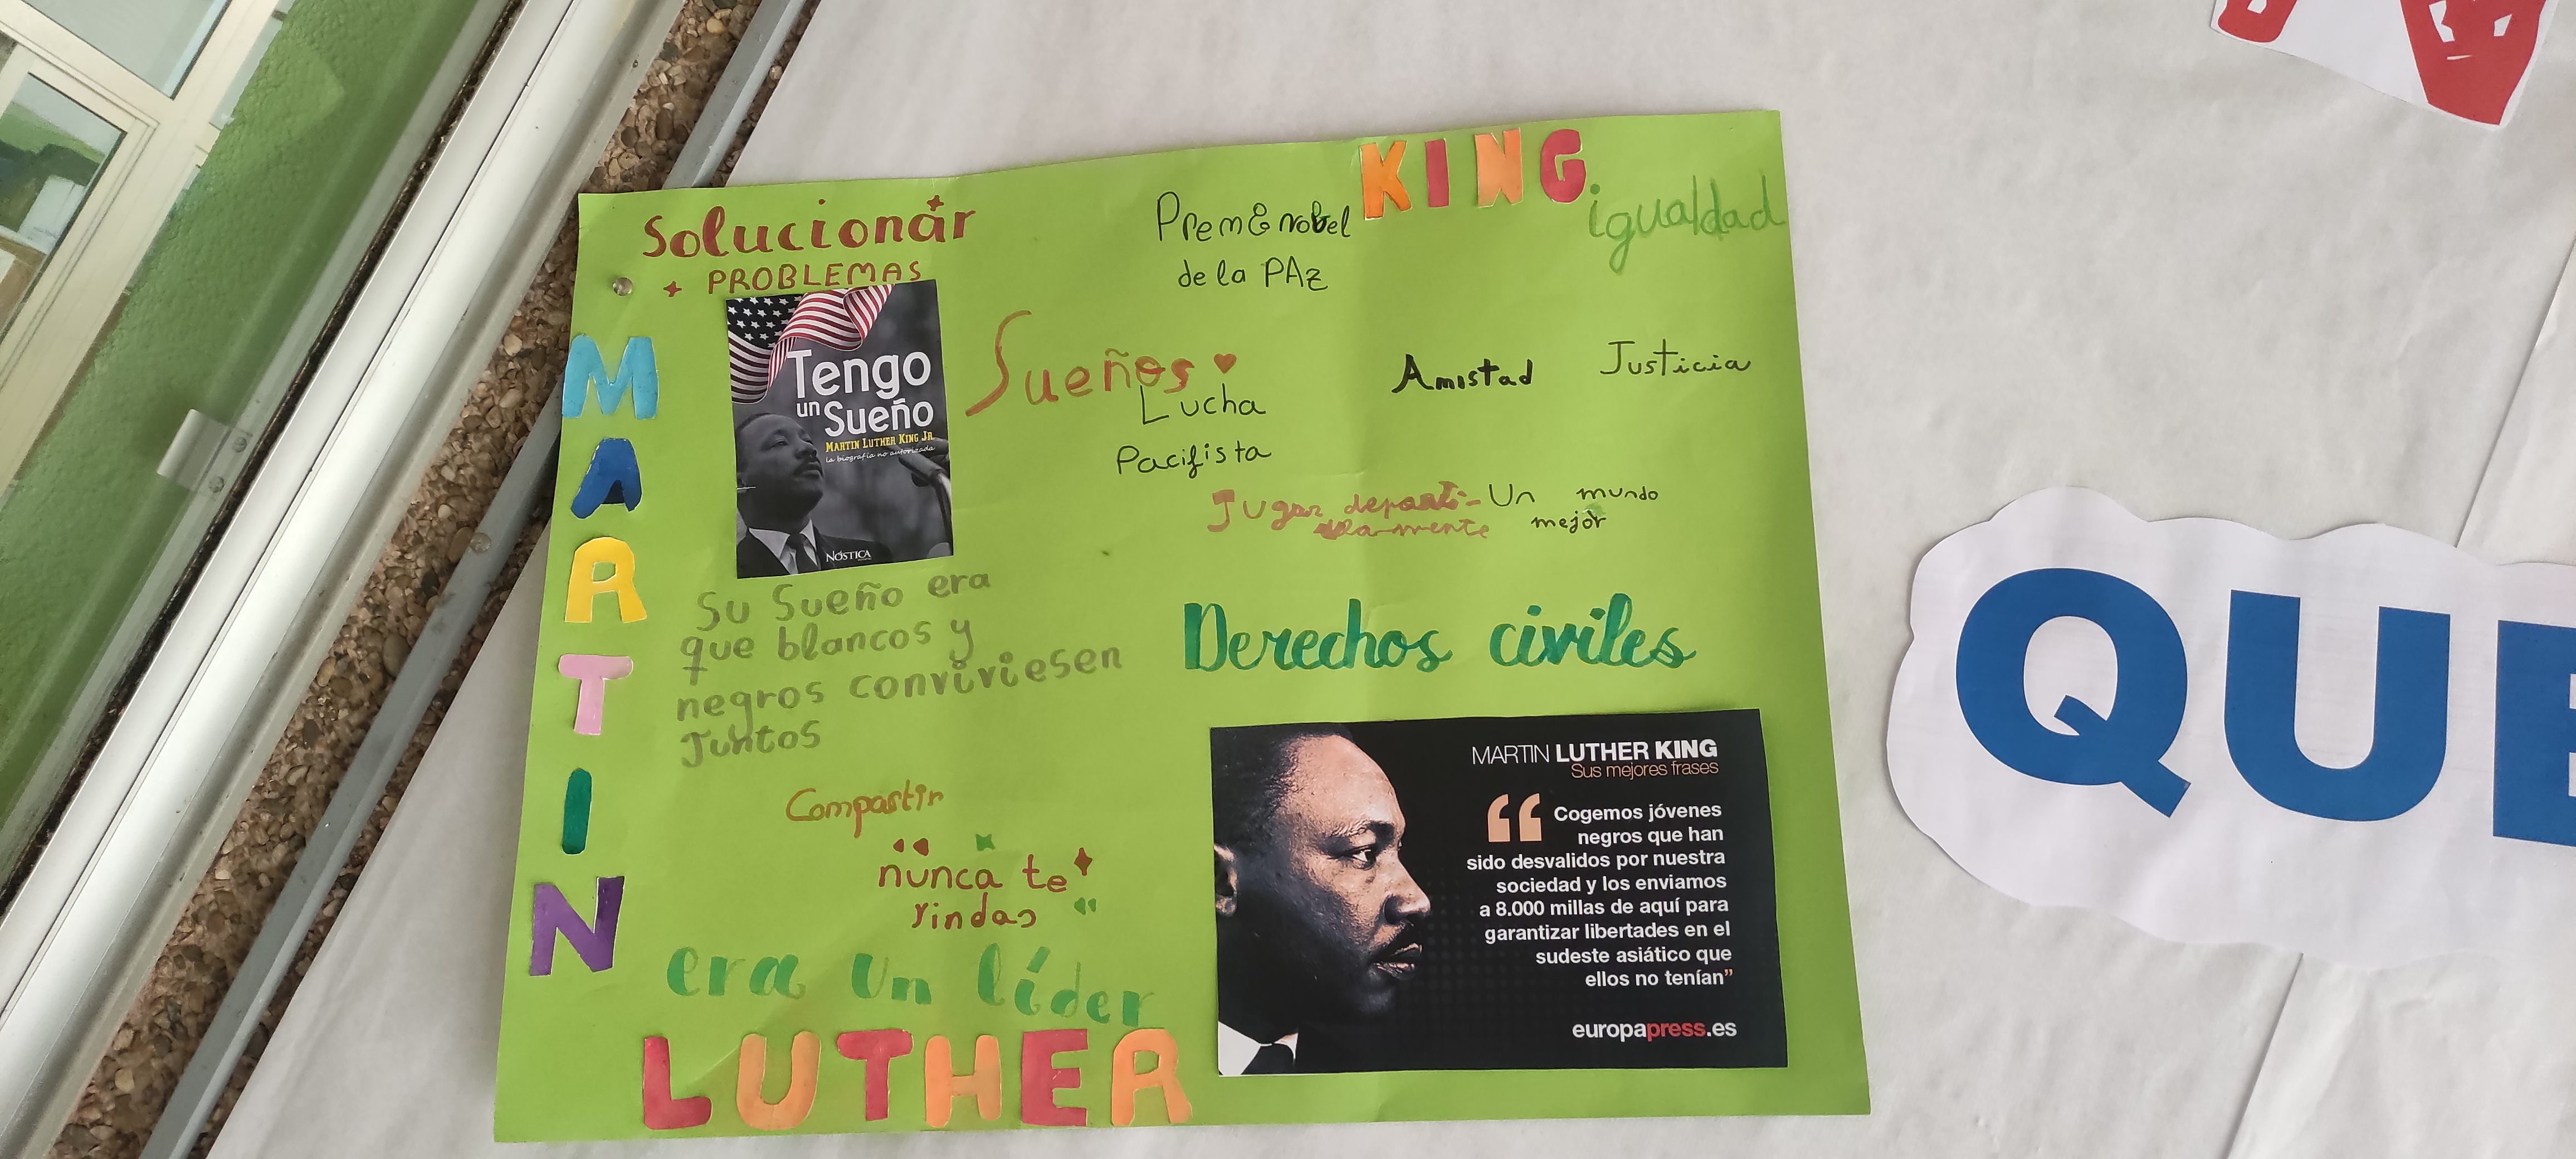 KING
Solucionar
PROBLEMAS
Premio nobel
de la PAz
igualdad
MARTIN
Tengo
un Sueño
MARTIN LUTHER KING JR.
la biografía no autorizada
NÓSTICA
Sueños
Lucha
Pacifista
Amistad
Justicia
Jugar
Un mundo
mejor
Su Sueño era
que blancos y
negros conviviesen
Juntos
Derechos civiles
Compartir
nunca te
rindas
era un líder
LUTHER
MARTIN LUTHER KING
Sus mejores frases
“ Cogemos jóvenes
negros que han
sido desvalidos por nuestra
sociedad y los enviamos
a 8.000 millas de aquí para
garantizar libertades en el
sudeste asiático que
ellos no tenían”
europapress.es
QUE